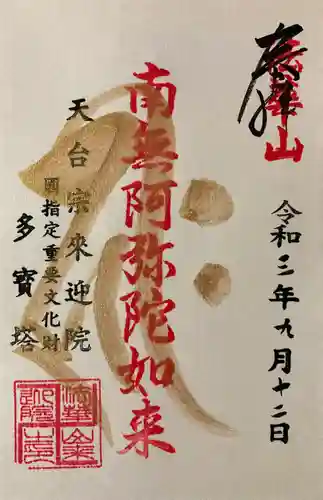 奉拝
法華山
令和三年九月十二日
南無阿弥陀如来
天台宗来迎院
國指定重要文化財
多寳塔